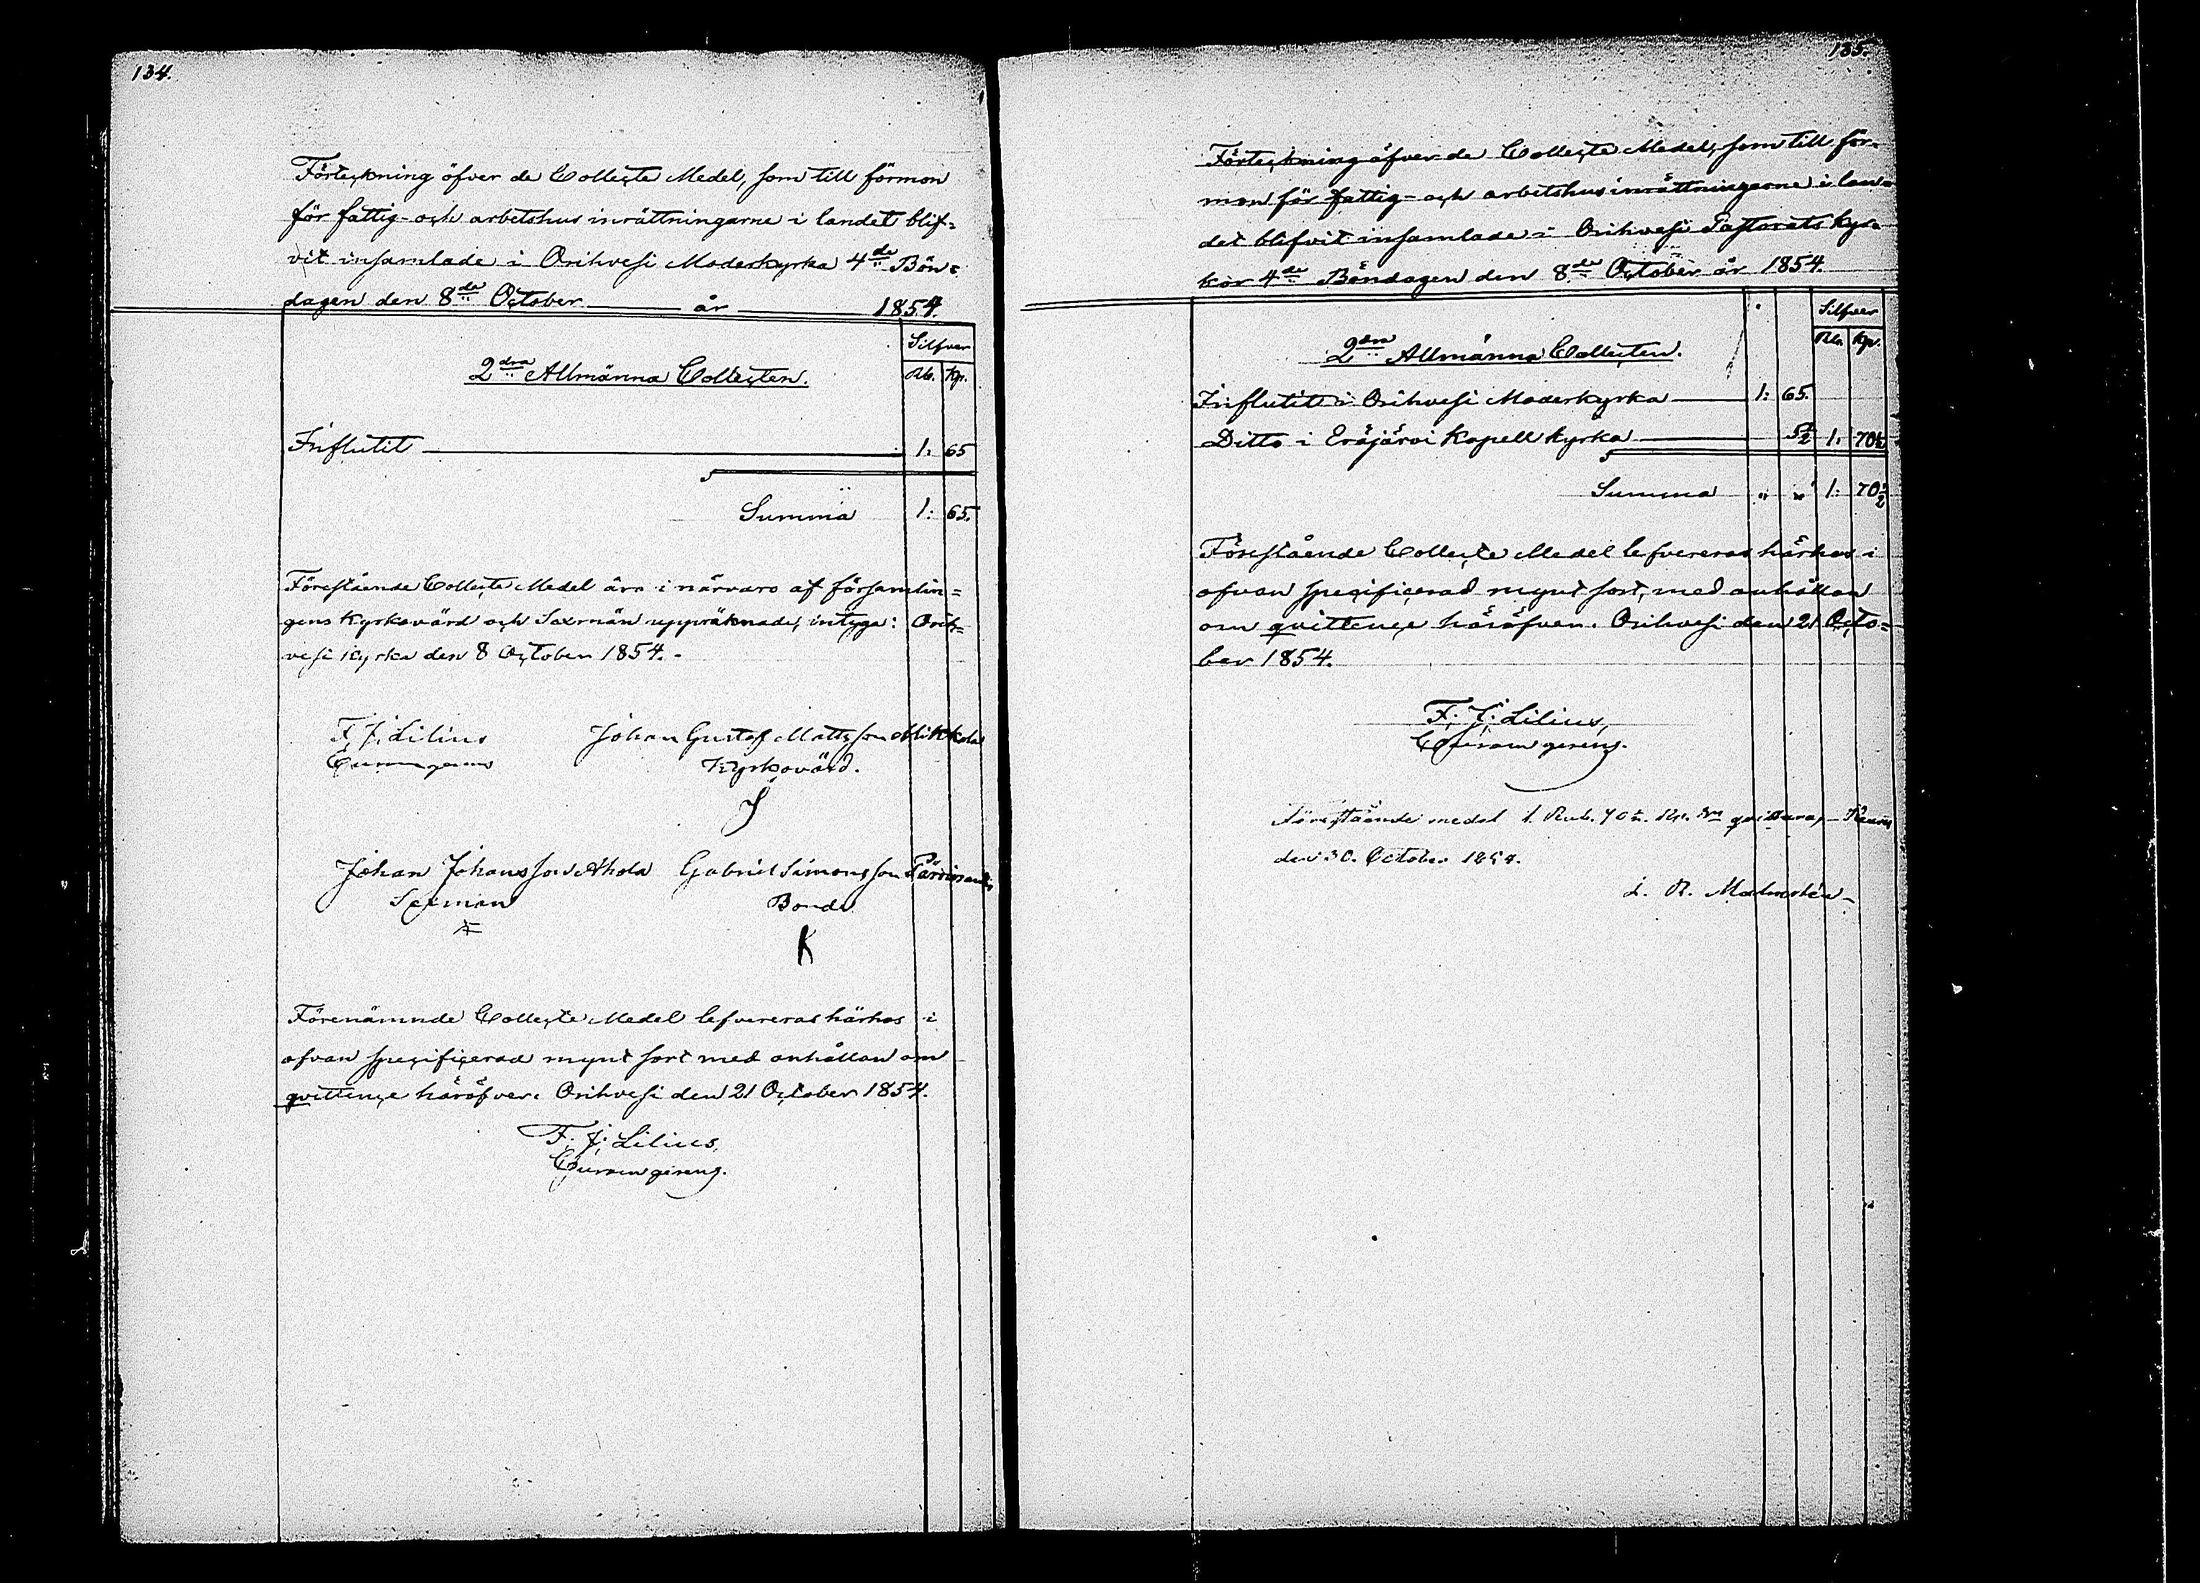 134.
Förteckning öfver de Collecte Medel, som till förmon
för fattig- och arbetshus inrättningarne i landet blif=
vit insamlade i Orihvesi Moderkyrka 4de Bön=
dagen den 8de October år 1854.
Silfver
2dra Allmänna Collecten.
Rb. Kp.
Influtit 1: 65
Summa 1: 65.
Förestående Collecte Medel äro i närvaro af församlin=
gens Kyrkovärd och Sexmän uppräknade, intyga: Orih=
vesi Kyrka den 8 October 1854.
F. J. Lilius Johan Gustaf Mattsson Mikkola
Kyrkovärd.
Johan Johansson Ahola Gabriel Simonsson
Sexman Bonde
K
Förenämnde Collecte Medel lefvereras härhos i
ofvan specificerad mynt sort med anhållan om
qvittence häröfver. Orihvesi den 21 October 1854.
F. J. Lilius,
Curam gerens.
135.
Förteckning öfver de Collecte Medel, som till för=
mon för fattig- och arbetshus inrättningarne i lan=
det blifvit insamlade i Orihvesi Pastorats kyr=
kor 4de Böndagen den 8de October år 1854.
Silfver
2dra Allmänna Collecten.
Rb. Kp.
Influtit i Orihvesi Moderkyrka 1: 65.
Ditto i Eräjärvi Kapell kyrka 5½ 1. 70½
Summa " " 1: 70½
Förestående Collecte Medel lefvereras härhos i
ofvan specificerad mynt sort, med anhållan
om qvittence häröfver. Orihvesi den 21 Octo=
ber 1854.
F. J. Lilius,
Curam gerens.
Förestående medel 1. Rub. 70½ Kp. Smt qvitteras,
den 30. October 1854.
L. R. Malmstén